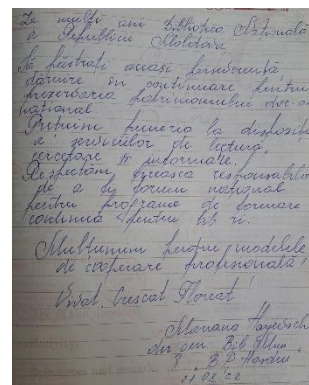 La mulți ani Biblioteca Națională
a Republicii Moldova,
Să păstrați aceeași perseverență
dăruire în continuare pentru
prezervarea patrimoniului
național.
Prețuim punerea la dispoziție
a serviciilor de lectură,
cercetare și informare.
Respectăm responsabilit
de a fi forum național
pentru programe de formare
continuă pentru
Mulțumim pentru modelele
de cooperare profesională!
Vivat, Crescat, Floreat!
Mariana
dir. gen. Bib. Mun.
B.P. Hasdeu